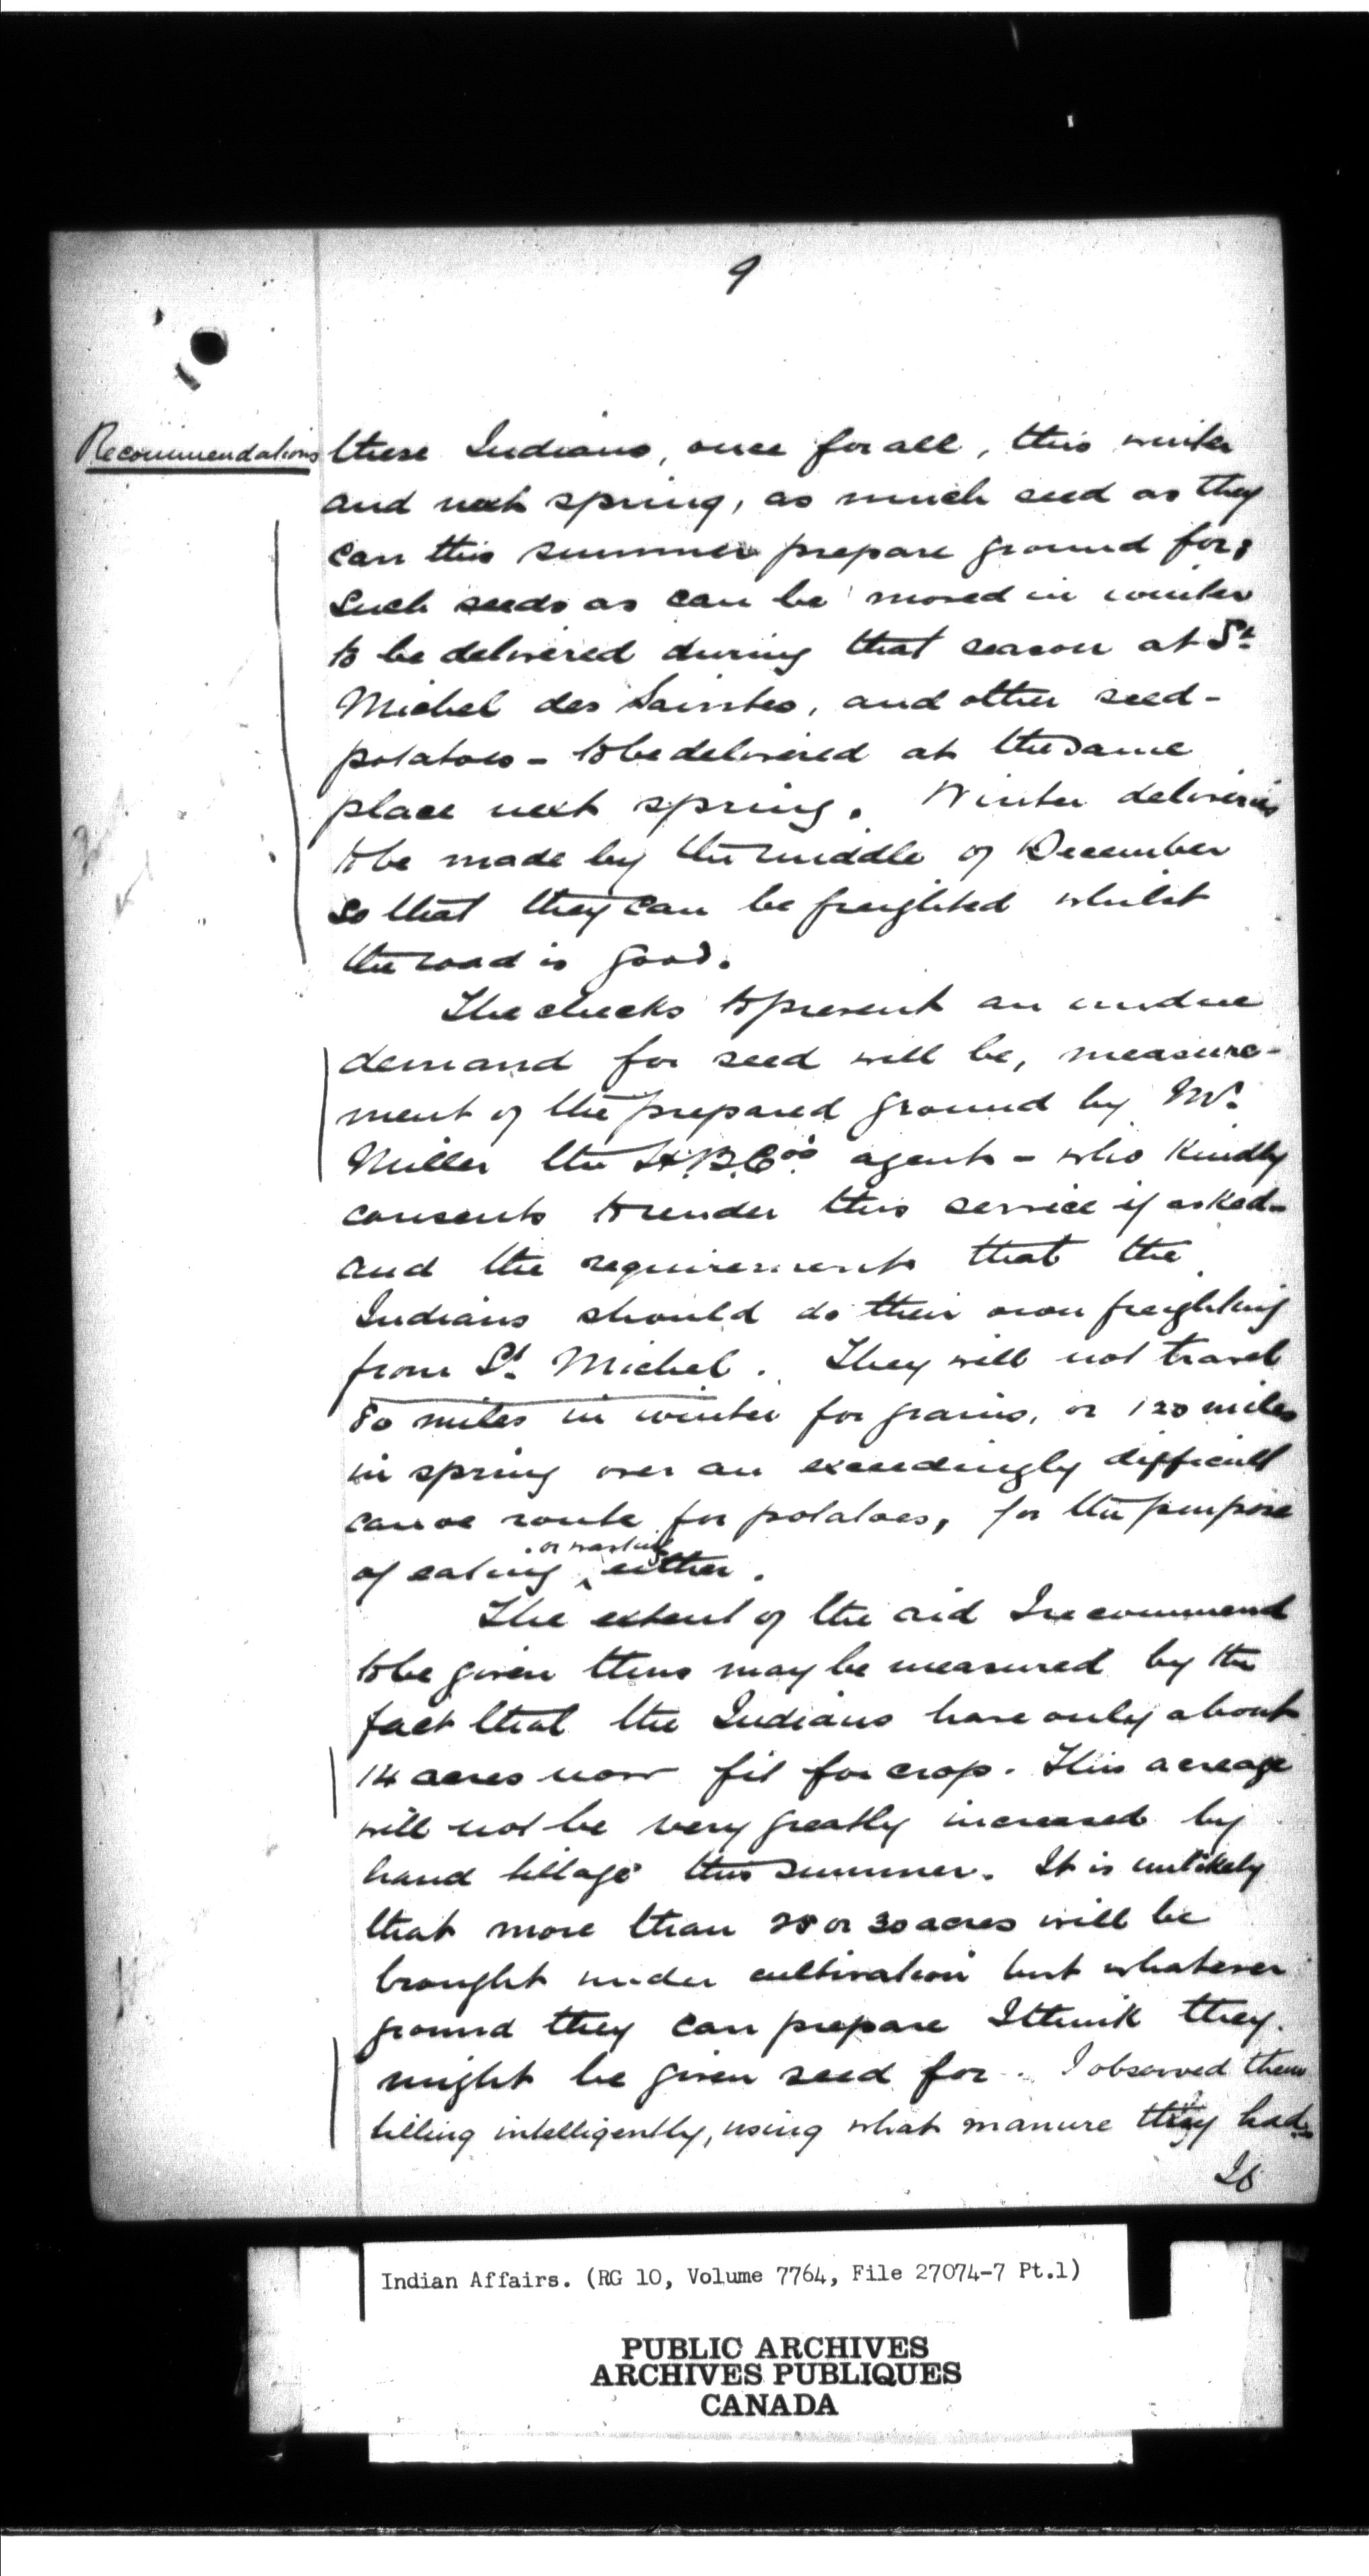 9
Recommendations
these Indians, once for all, this winter
and next spring, as much seed as they
can this summer prepare ground for;
Such seeds as can be moved in winter
to be delivered during that season at St.
Michel des Saintes, and other seed-
potatoes - to be delivered at the same
place next spring. Winter deliveries
to be made by the middle of December
so that they can be freighted whilst
the road is good.
The checks to prevent an undue
demand for seed will be, measure-
ment of the prepared ground by Mr.
Miller the H.B.Co's agent - who kindly
consents to render this service if asked -
and the requirements that the
Indians should do their own freighting
from St. Michel. They will not travel
80 miles in winter for grains, or 120 miles
in spring over an exceedingly difficult
canoe route for potatoes, for the purpose
or wasting
of eating either.
The extent of the aid I recommend
to be given thus may be measured by the
fact that the Indians have only about
14 acres now fit for crop. This acreage
will not be very greatly increased by
hand tillage this summer. It is unlikely
that more than 25 or 30 acres will be
brought under cultivation but whatever
ground they can prepare I think they
might be given seed for. I observed them
tilling intelligently, using what manure they had.
It
Indian Affairs. (RG 10, Volume 7764, File 27074-7 Pt.1)
PUBLIC ARCHIVES
ARCHIVES PUBLIQUES
CANADA